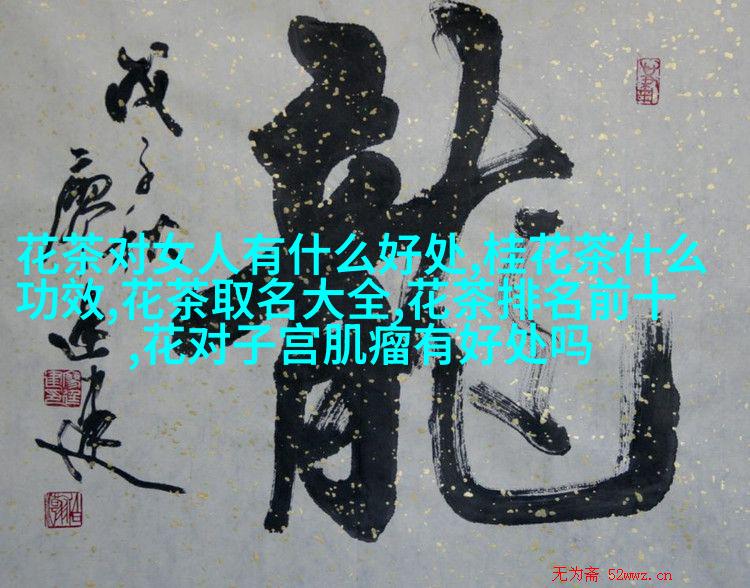 龍
戊子秋
花茶对女人有什么好处,桂花茶什么
功效,花茶取名大全,花茶排名前十
,花对子宫肌瘤有好处吗
无为斋 52wwz.cn